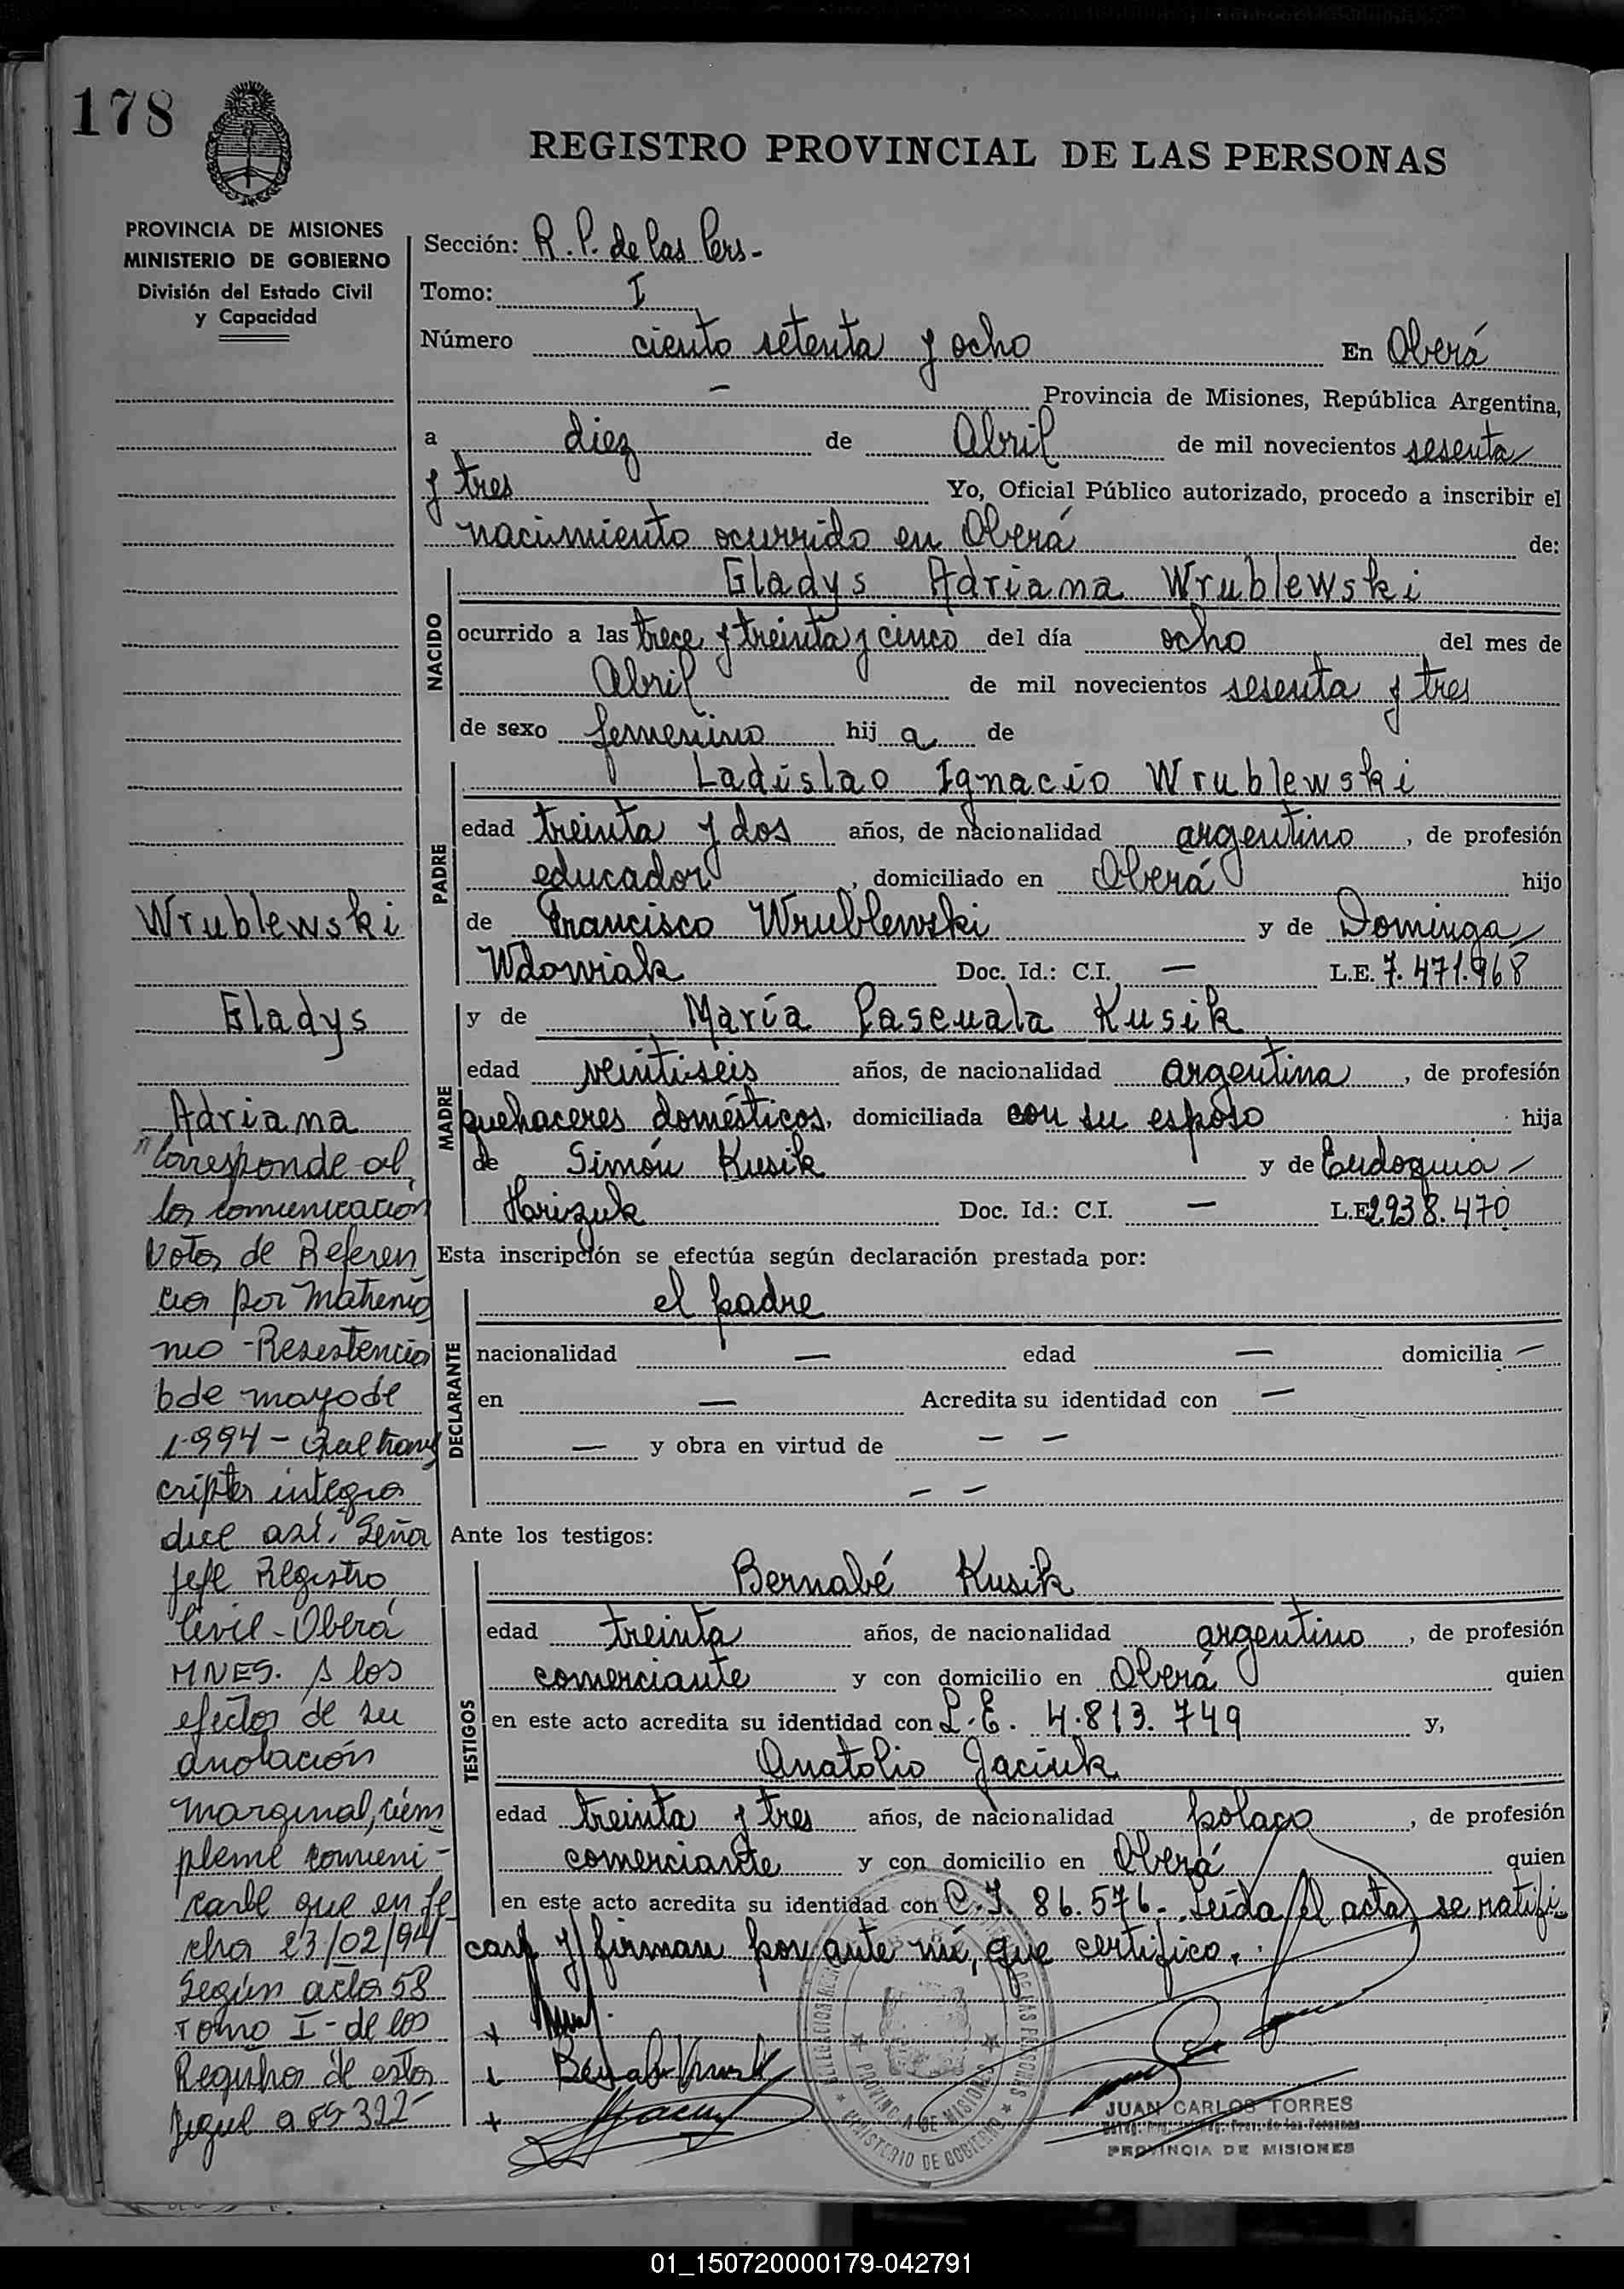 178
REGISTRO PROVINCIAL DE LAS PERSONAS
PROVINCIA DE MISIONES
MINISTERIO DE GOBIERNO
División del Estado Civil
y Capacidad
Sección: R. P. de las Pers-
Tomo: I
Número ciento setenta y ocho En Oberá
— Provincia de Misiones, República Argentina,
a diez de Abril de mil novecientos sesenta
y tres Yo, Oficial Público autorizado, procedo a inscribir el
nacimiento ocurrido en Oberá de:
NACIDO
Gladys Adriana Wrublewski
ocurrido a las trece y treinta y cinco del día ocho del mes de
Abril de mil novecientos sesenta y tres
de sexo femenino hij a de
PADRE
Ladislao Ignacio Wrublewski
edad treinta y dos años, de nacionalidad argentino, de profesión
educador, domiciliado en Oberá hijo
de Francisco Wrublewski y de Dominga
Wdowiak Doc. Id.: C.I. — L.E. 7.471.968
MADRE
y de María Pascuala Kusik
edad veintiseis años, de nacionalidad argentina, de profesión
quehaceres domésticos, domiciliada con su esposo hija
de Simón Kusik y de Eudoquia
Harizuk Doc. Id.: C.I. — L.E. 2.938.470
Esta inscripción se efectúa según declaración prestada por:
DECLARANTE
el padre
nacionalidad — edad — domicilia —
en — Acredita su identidad con —
— y obra en virtud de — —
— —
Ante los testigos:
TESTIGOS
Bernabé Kusik
edad treinta años, de nacionalidad argentino, de profesión
comerciante y con domicilio en Oberá quien
en este acto acredita su identidad con L.E. 4.813.749 y,
Anatolio Jaciuk
edad treinta y tres años, de nacionalidad polaco, de profesión
comerciante y con domicilio en Oberá quien
en este acto acredita su identidad con C.I. 86.576-. Leida el acta, se ratifi
can y firman por ante mí, que certifico.
JUAN CARLOS TORRES
PROVINCIA DE MISIONES
PROVINCIA DE MISIONES
MINISTERIO DE GOBIERNO
Wrublewski
Gladys
Adriana
"Corresponde al
la comunicación
Nota de Referen
cia por Matrimo
nio - Resistencia
6 de mayo de
1.994 -
cripta integra
dice así, Señor
Jefe Registro
Civil - Oberá
MNES. A los
efectos de su
anotación
marginal, cúm
pleme comuni-
carle que en fe
cha 23/02/94
Según acta 58
Tomo I - de los
Registros de esta
01_150720000179-042791